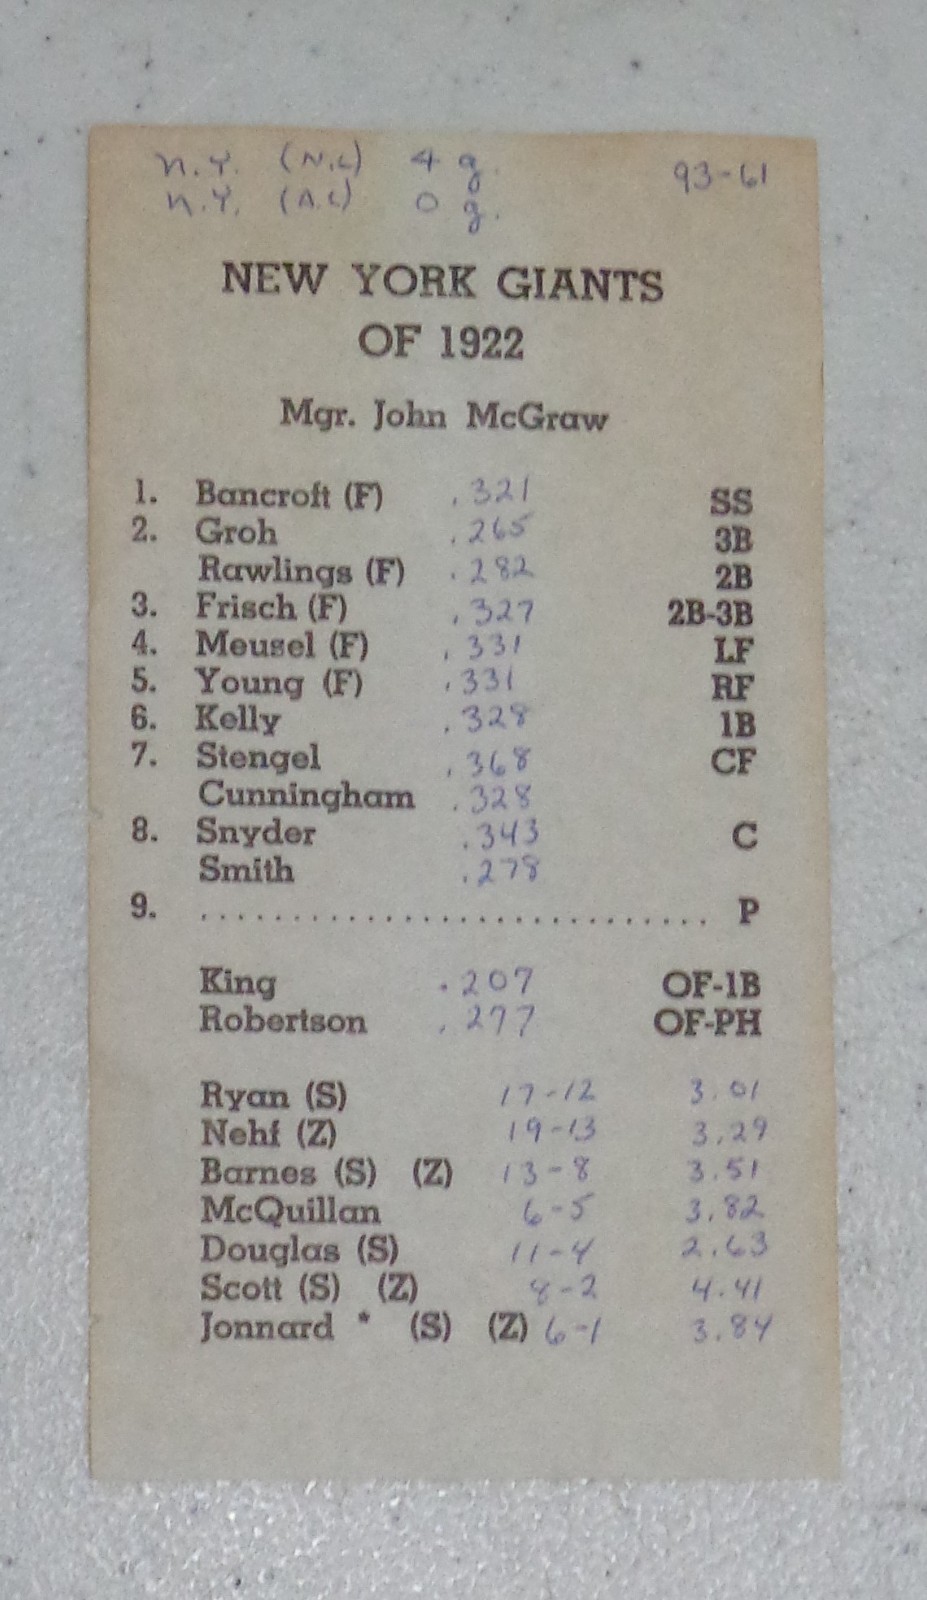 N.Y. (N.L) 4 g. 93-61
N.Y. (A.L) 0 g.
NEW YORK GIANTS
OF 1922
Mgr. John McGraw
1. Bancroft (F) .321 SS
2. Groh .265 3B
Rawlings (F) .282 2B
3. Frisch (F) .327 2B-3B
4. Meusel (F) .331 LF
5. Young (F) .331 RF
6. Kelly .328 1B
7. Stengel .368 CF
Cunningham .328
8. Snyder .343 C
Smith .278
9. .............................. P
King .207 OF-1B
Robertson .277 OF-PH
Ryan (S) 17-12 3.01
Nehf (Z) 19-13 3.29
Barnes (S) (Z) 13-8 3.51
McQuillan 6-5 3.82
Douglas (S) 11-4 2.63
Scott (S) (Z) 8-2 4.41
Jonnard * (S) (Z) 6-1 3.84